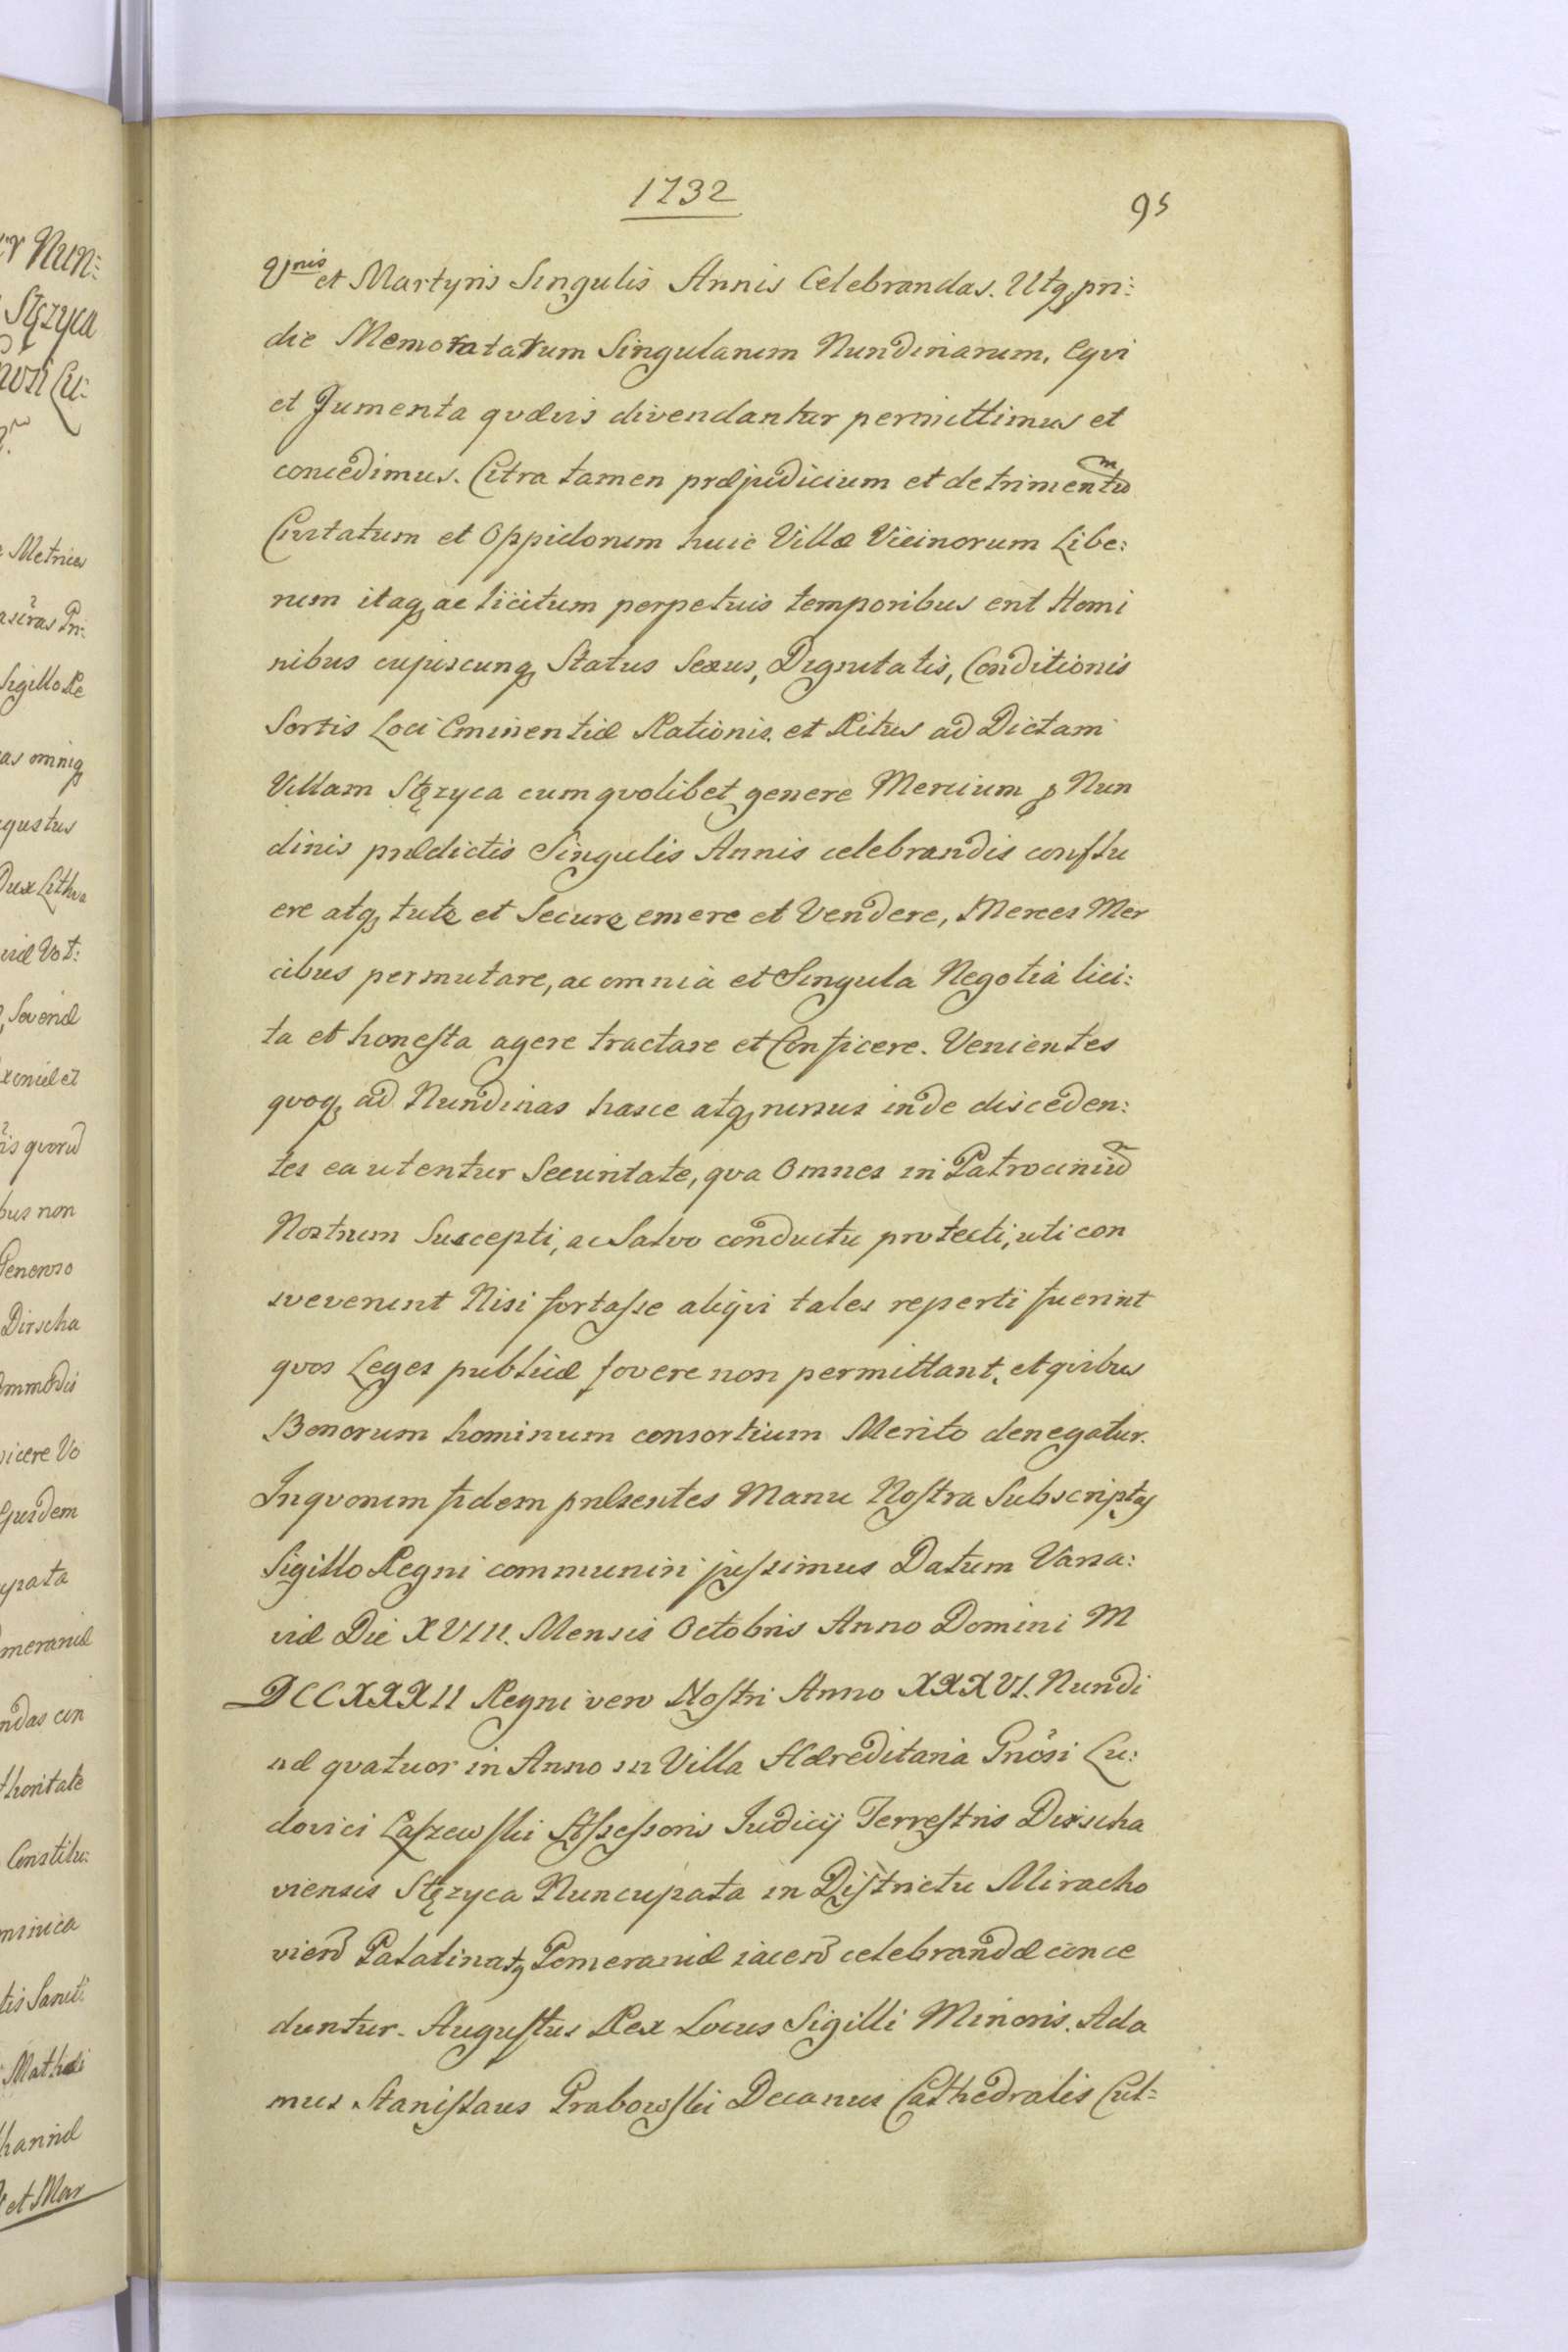 1732
95
Vnis et Martyris Singulis Annis Celebrandas. Utq pri:
die Memoratarum Singularum Nundinarum, Eqvi
et Jumenta qvævis divendantur permittimus et
concedimus. Citra tamen præjudicium et detrimentũ
Civitatum et Oppidorum huic Villæ Vicinorum Libe:
rum itaq ac licitum perpetuis temporibus erit Homi
nibus cujuscunq Status Sexus, Dignitatis, Conditionis
Sortis Loci Eminentiæ Rationis et Ritus ad Dictam
Villam Stęzyca cum qvolibet genere Mercium p Nun
dinis prædictis Singulis Annis celebrandis conflu
ere atq tute et Secure emere et Vendere, Merces Mer
cibus permutare, ac omnia et Singula Negotia lici:
ta et honesta agere tractare et Conficere. Venientes
qvoq ad Nundinas hasce atq rursus inde disceden:
tes ea utentur Securitate, qva Omnes in Patrociniũ
Nostrum Suscepti, ac Salvo conductu protecti, uti con
svevernnt Nisi fortasse aliqvi tales reperti fuerint
qvos Leges publicæ fovere non permittant, et qvibus
Bonorum hominum consortium Merito denegatur.
In qvorum fidem præsentes Manu Nostra Subscriptas
Sigillo Regni communiri jussimus Datum Varsa:
viæ Die XVIII. Mensis Octobris Anno Domini M
DCCXXXII Regni vero Nostri Anno XXXVI. Nundi
næ qvatuor in Anno in Villa Hæreditaria Gnosi Lu:
dovici Łaszewski Assessoris Judicij Terrestris Dirscha
viensis Stęzyca Nuncupata in Districtu Miracho
vien Palatinatq Pomeraniæ iacen celebrandæ conce
duntur. Augustus Rex Locus Sigilli Minoris. Ada
mus Stanislaus Grabowski Decanus Cathedralis Cul=